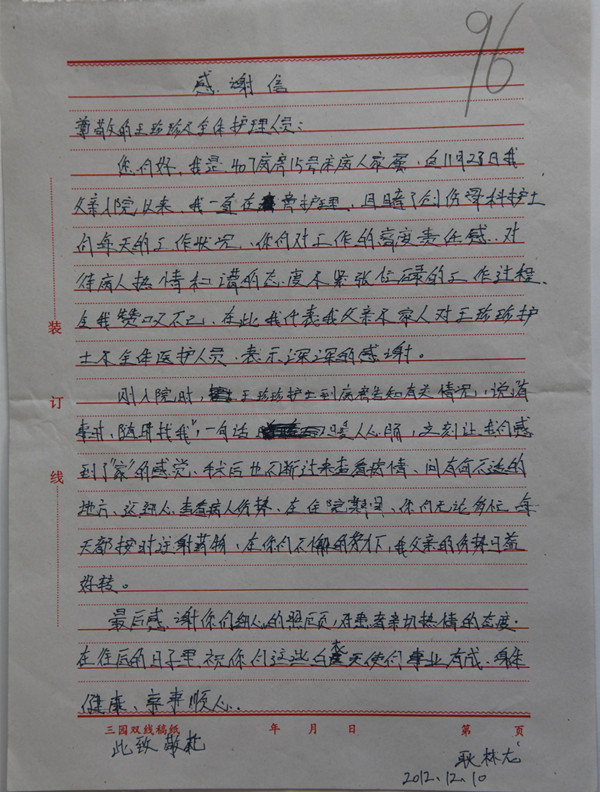 96
感谢信
尊敬的王珍珍及全体护理人员：
你们好，我是407病房15号床病人家属，自11月23日我
父亲入院以来，我一直在 病房护理，目睹了创伤骨科护士
们每天的工作状况，你们对工作的高度责任感，对
待病人热情和谐的态度和紧张忙碌的工作过程，
令我赞口又不已，在此我代表我父亲和家人对王珍珍护
士和全体医护人员，表示深深的感谢。
刚入院时， 王珍珍护士到病房告知有关情况，说道
"有事，随时找我"，一句话 暖人心肺，立刻让我们感
到了"家"的感觉，手术后也不断过来查看病情、问有何不适的
地方、这 查看病人伤势、在住院期间、你们无论多忙，每
天都按时注射药物，在你们不懈的努力下，我父亲的伤势日益
好转。
最后感谢你们细心的照顾，在患者亲切热情的态度。
在住后的日子里祝你们这些白衣天使们事业有成、身体
健康、亲事顺心。
装
订
线
三园双线稿纸 年 月 日 第 页
此致 敬礼
耿林
2012.12.10